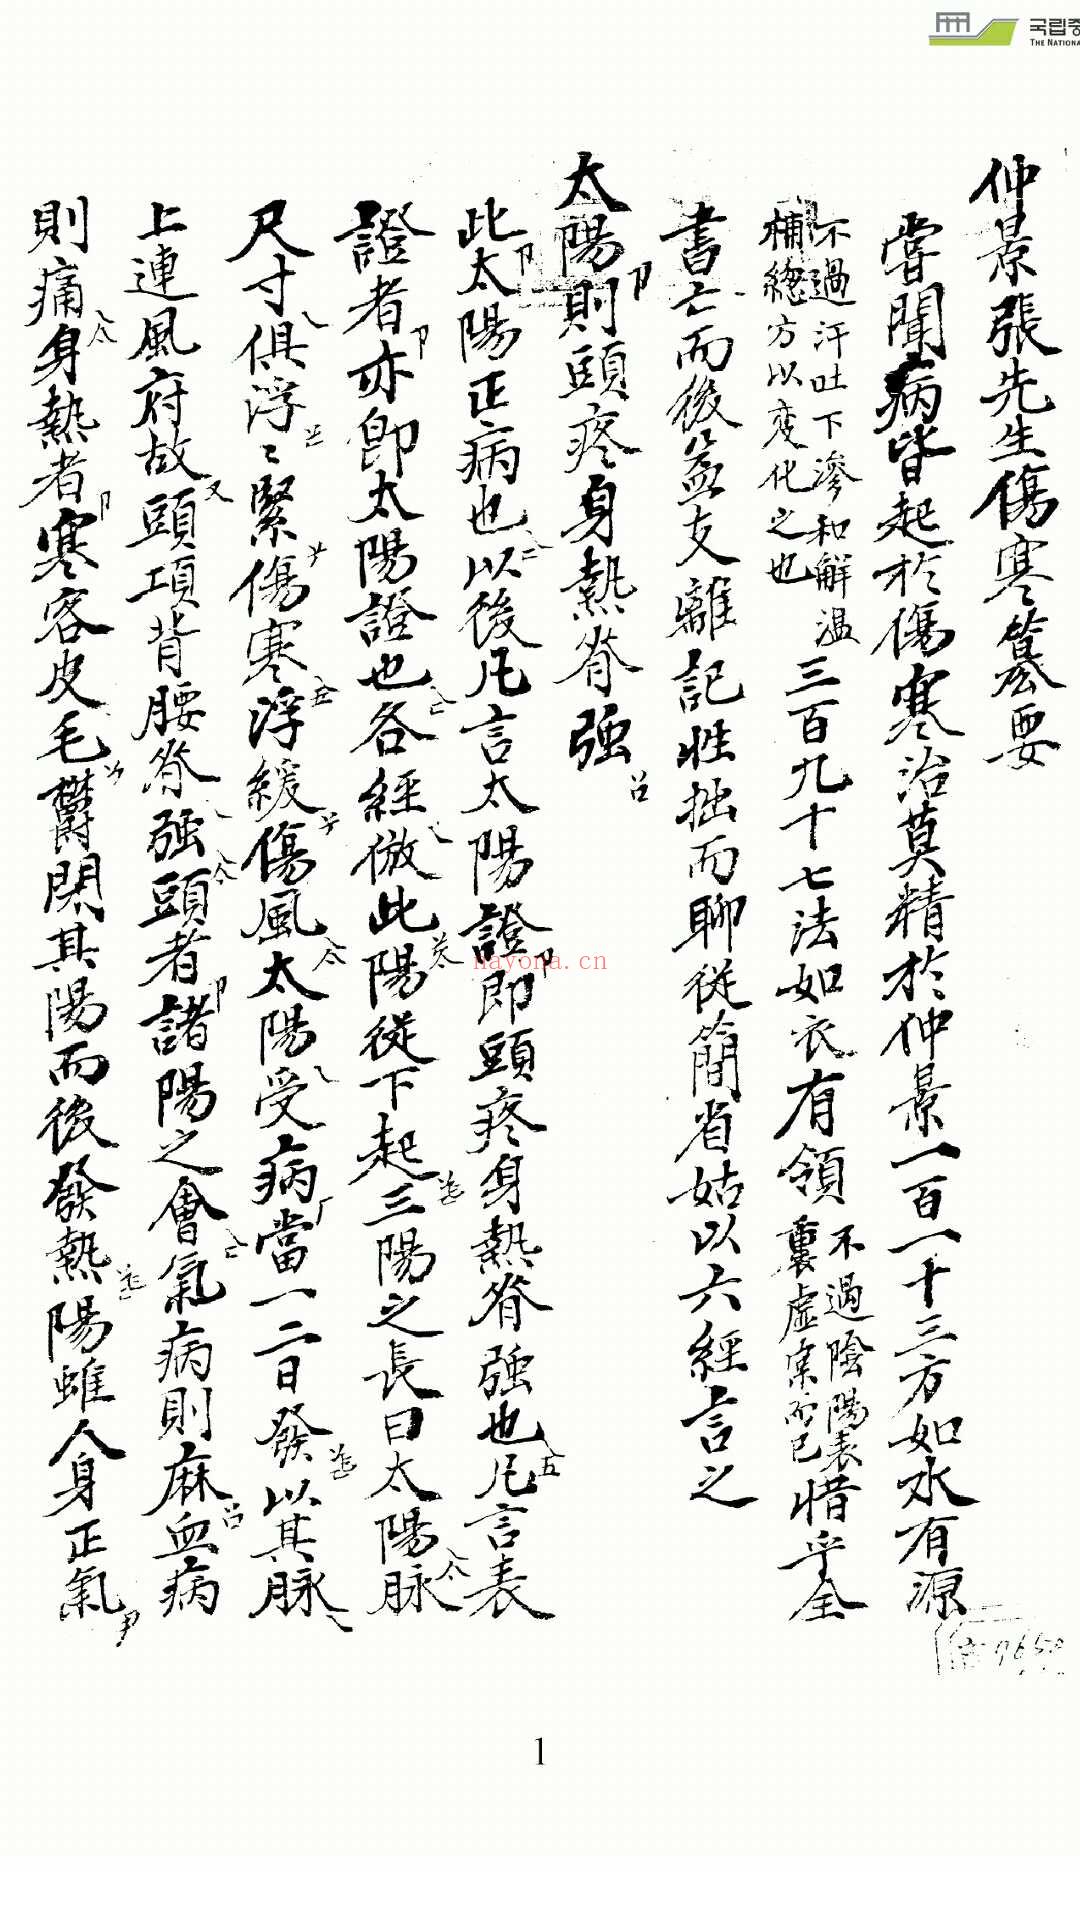 국립중
THE NATIONA
仲景張先生傷寒纂要
嘗聞病皆起於傷寒治莫精於仲景一百一十三方如水有源
不過汗吐下滲和解溫
補總方以変化之也
三百九十七法如衣有領
不過陰陽表
裏虛實而已
惜乎全
書亡而後益支離記性拙而聊從簡省姑以六經言之
太陽則頭疼身熱脊强
此太陽正病也以後凡言太陽證即頭疼身熱脊强也凡言表
證者亦即太陽證也各經倣此陽從下起三陽之長曰太陽脉
尺寸俱浮〻緊傷寒浮緩傷風太陽受病當一二日發以其脉
上連風府故頭項背腰脊强頭者諸陽之會氣病則麻血病
則痛身熱者寒客皮毛欝閉其陽而後發熱陽雖人身正氣
nayona.cn
1